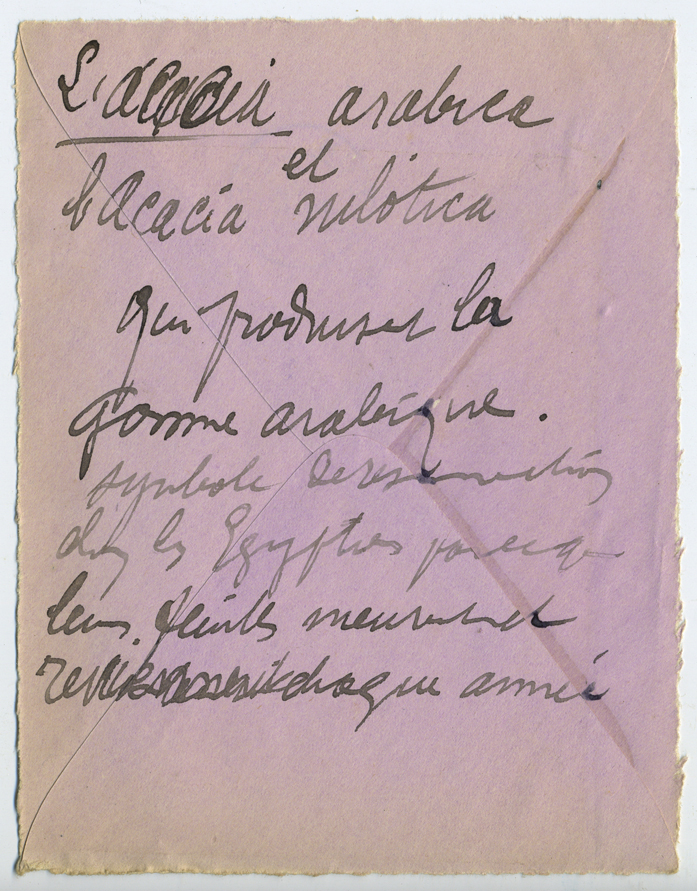 L'acacia arabica
et
l'Acacia nilótica
qui produisent la
gomme arabique.
symbole de résurrection
chez les Egyptiens parce que
leurs feuilles meurent et
renaissent chaque année